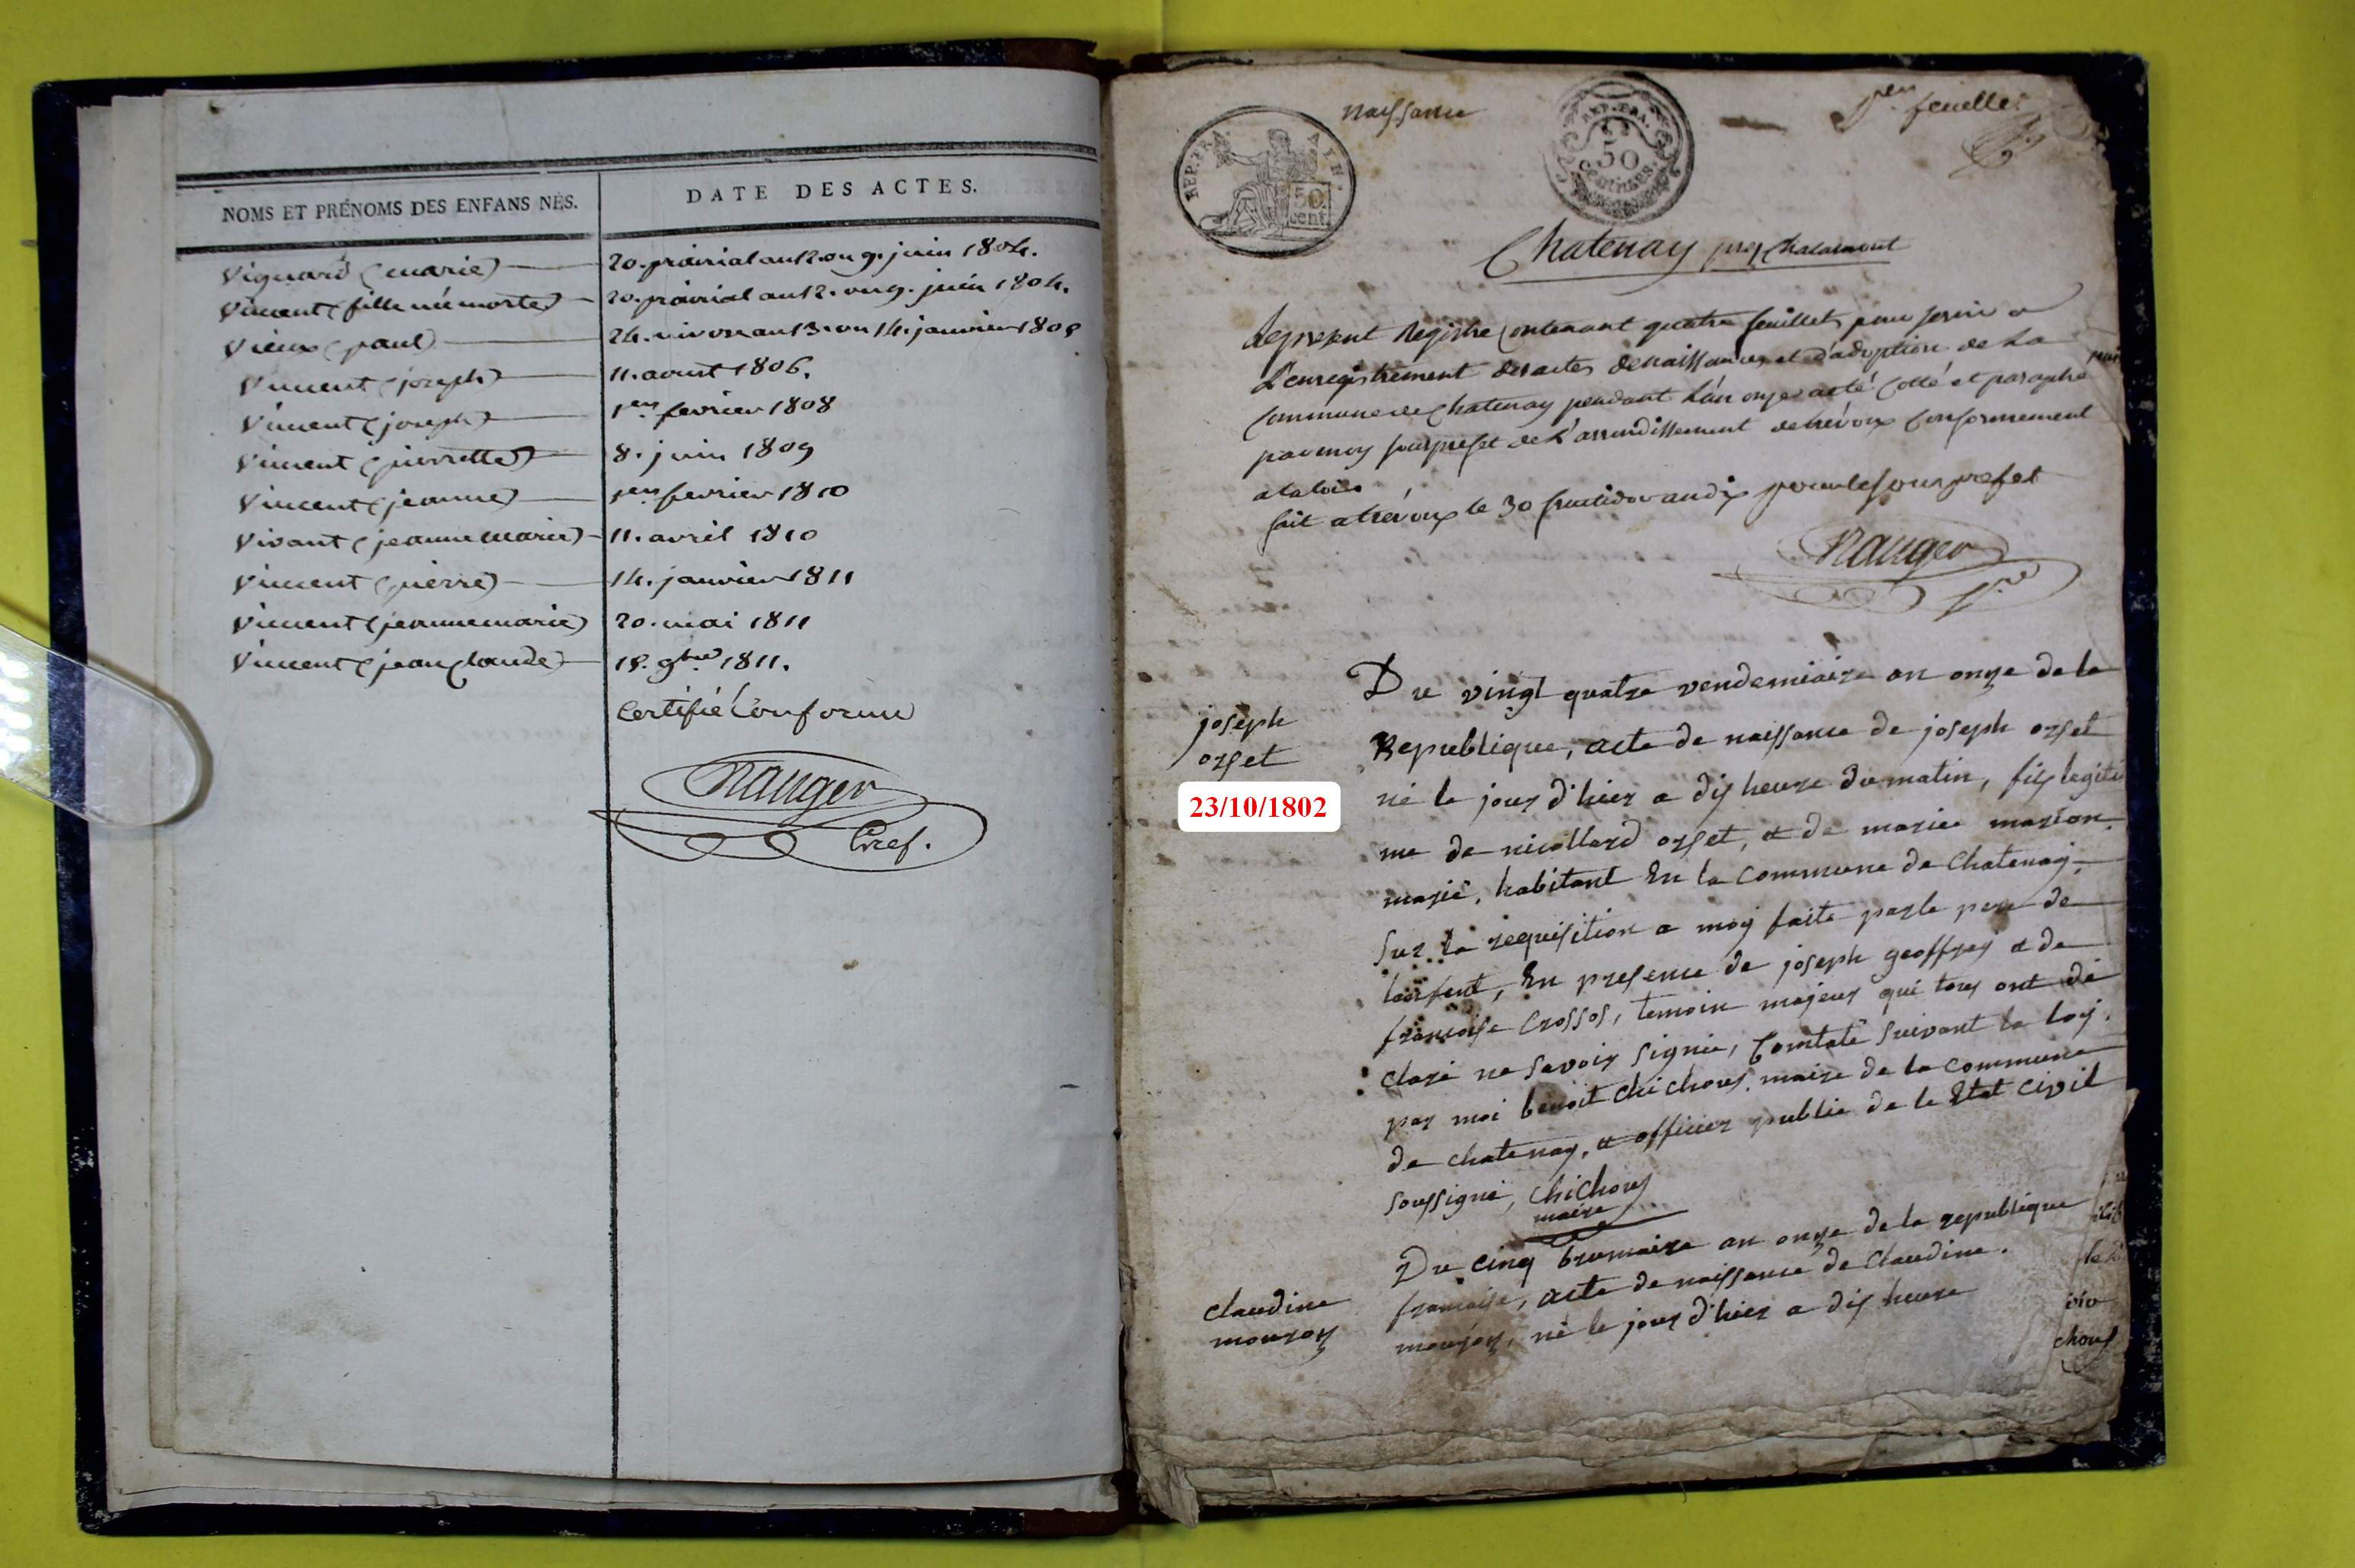 NOMS ET PRÉNOMS DES ENFANS NÉS.
DATE DES ACTES.
Viguard (marie) 20. prairial an 12. ou 9. juin 1804.
Vincent (fille née morte) 20. prairial an 12. ou 9. juin 1804.
Vieux (paul) 24. nivose an 13. ou 14. janvier 1805
Vincent (joseph) 11. aoust 1806.
Vincent (joseph) 1er fevrier 1808
Vincent (pierrette) 8. juin 1809
Vincent (jeanne) 1er fevrier 1810
Vivant (jeanne marie) 11. avril 1810
Vincent (pierre) 14. janvier 1811
Vincent (jeanne marie) 20. mai 1811
Vincent (jean claude) 18. 9bre 1811.
Certifié Conforme
Nauger
Gref.
naissance
1er feuillet
REP. FRA. AIN.
50 cent.
REP. FRA.
50
Centimes.
Chatenay près Chalamont
le present Registre Contenant quatre feuillets pour servir a
L'enregistrement des actes de naissances et d'adoption de La
Commune de Chatenay pendant L'an onze a été Cotté et paraphé
par moy sous prefet de L'arrondissement de trévoux Conformement
a la loi
fait a trévoux le 30 fructidor an dix pour le sous prefet
Nauger
joseph
orset
23/10/1802
Du vingt quatre vendemiaire an onze de la
Republique, acte de naissance de joseph orset
né le jour d'hier a dix heure du matin, fils legiti
me de nicollard orset, et de marie marion
marié, habitant En la commune de Chatenay,
sur la requisition a moy faite par le pere de
lenfent, En presence de joseph geoffrey et de
francoise Crossos, temoin majeur qui tous ont dé
claré ne savoir signie, Comtaté suivant la loy.
par moi benoit Chichoux, maire de la commune
de chatenay, et officier public de le Etat civil
soussigné, Chichoux
maire
claudine
mouron
Du cinq brumaire an onze de la republique
francaise, acte de naissance de Claudine.
né le jour d'hier a dix heure